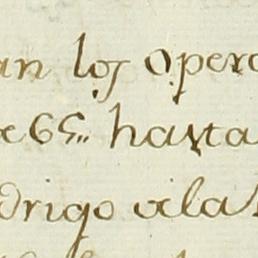 an los oper
e 65.. hasta
drigo vila